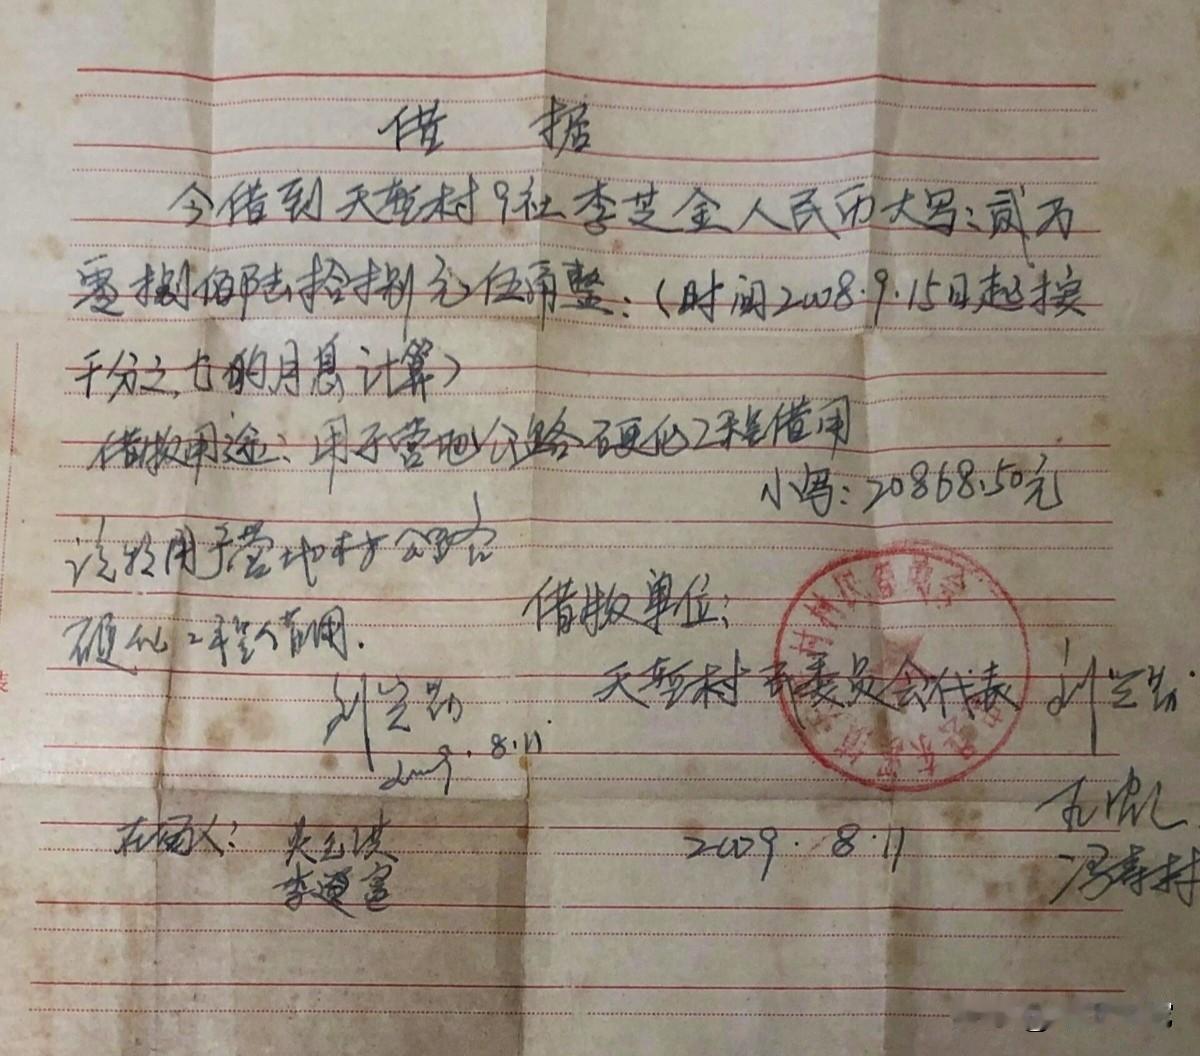 借 据
今借到天堑村9社李芝金人民币大写：贰万
零捌佰陆拾捌元伍角整：（时间2008.9.15日起按
千分之九的月息计算）
借款用途：用于营地公路硬化工程借用
小写：20868.50元
该款用于营地村公路
硬化工程借用.
借款单位：
天堑村民委员会代表
2009.8.11
在场人：
李道富
2009.8.11
冯寿村
村村民委员会